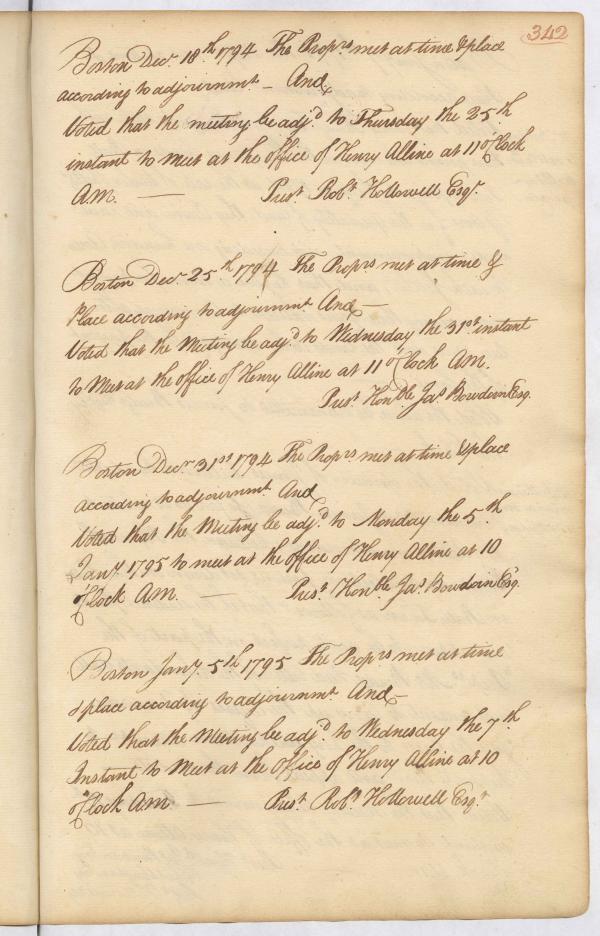 342
Boston Decr. 18th 1794 The Proprs met at time & place
according to adjournmt - And,
Voted that the meeting be adjd. to Thursday the 25th.
instant to meet at the office of Henry Alline at 11 o'Clock
A.M. — Prest. Robt. Hollowell Esqr.
Boston Decr. 25th. 1794 The Proprs met at time &
Place according to adjournmt And —
Voted that the Meeting be adjd. to Wednesday the 31st instant
to Meet at the office of Henry Alline at 11 o'Clock AM.
Prest. Honble Jas Bowdoin Esq.
Boston Decr 31st 1794 The Proprs met at time & place
according to adjournmt And
Voted that the Meeting be adjd. to Monday the 5th
Jany 1795 to meet at the office of Henry Alline at 10
o'Clock A.M. — Prest. Honble Jas. Bowdoin Esq.
Boston Jany. 5th 1795 The Proprs met at time
& place according to adjournmt And —
Voted that the Meeting be adjd to Wednesday the 7th
Instant to Meet at the office of Henry Alline at 10
o'Clock A.M. — Prest. Robt. Hollowell Esqr.